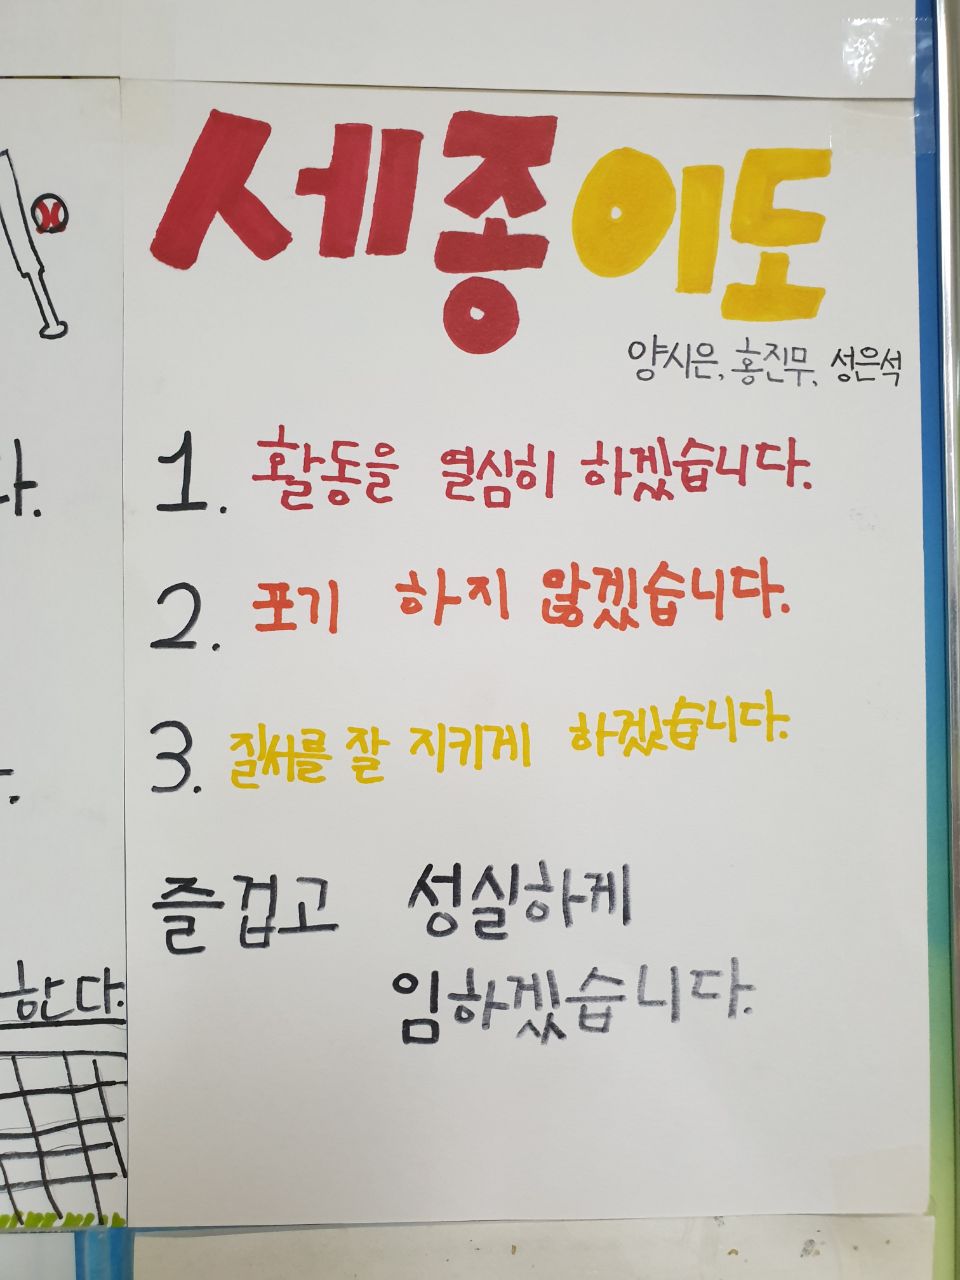 세종이도
양시은, 홍진무, 성은석
1. 활동을 열심히 하겠습니다.
2. 포기 하지 않겠습니다.
3. 질서를 잘 지키게 하겠습니다.
즐겁고 성실하게
임하겠습니다.
다.
한다.